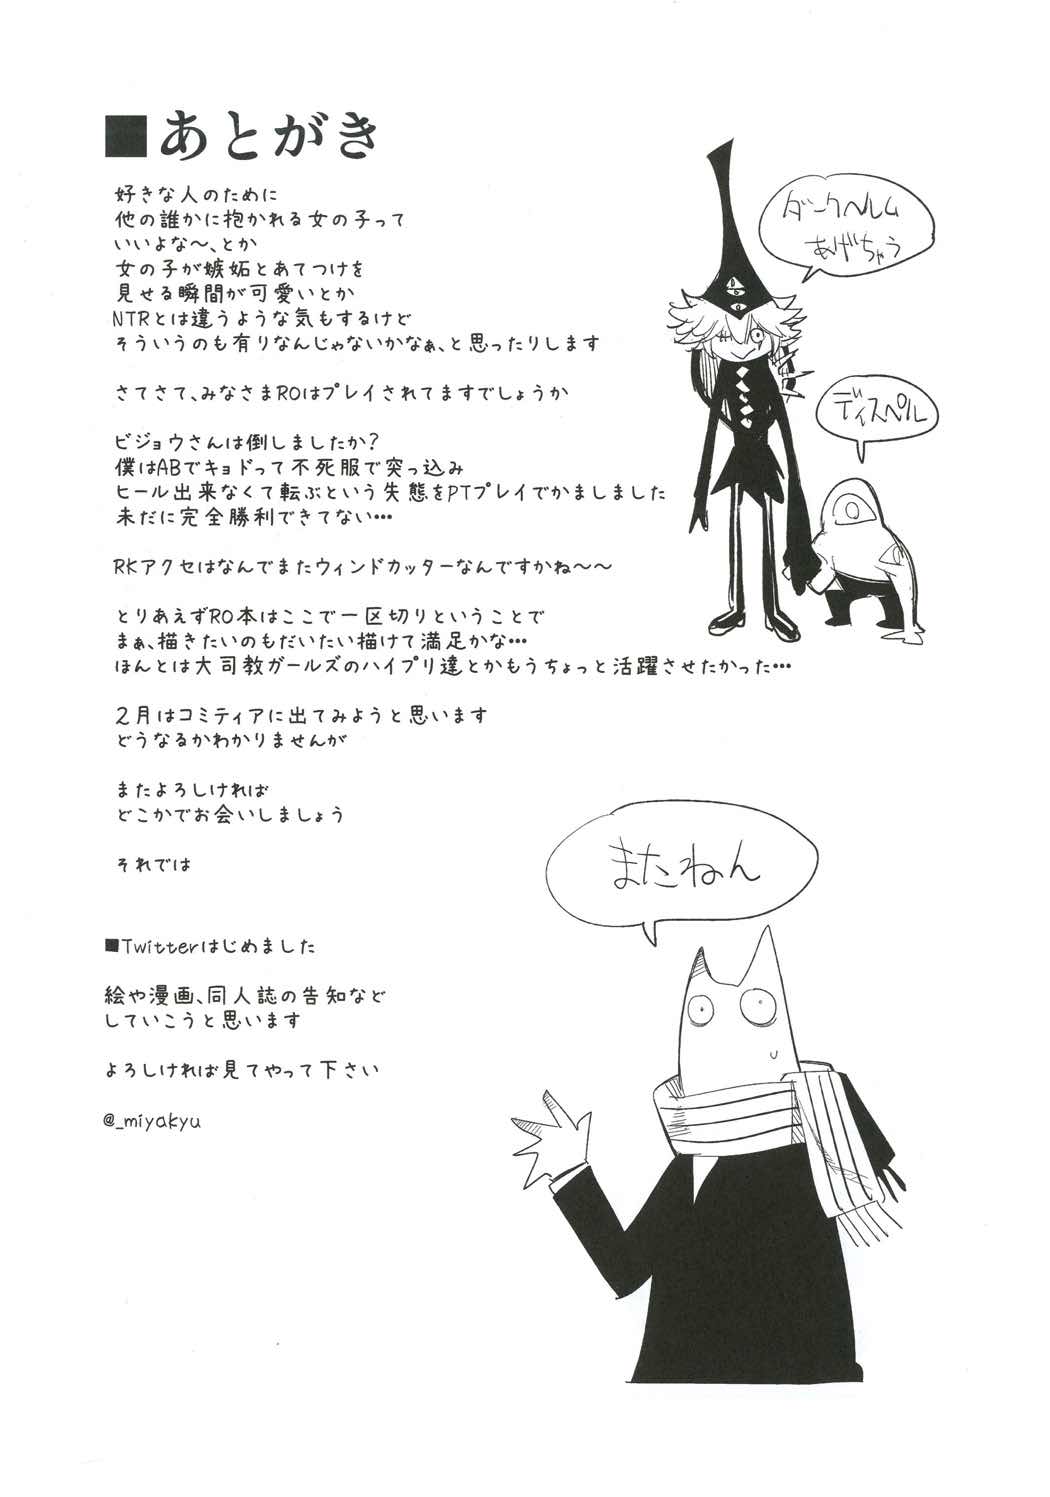 ■あとがき
好きな人のために
他の誰かに抱かれる女の子って
いいよな～、とか
女の子が嫉妬とあてつけを
見せる瞬間が可愛いとか
NTRとは違うような気もするけど
そういうのも有りなんじゃないかなぁ、と思ったりします
さてさて、みなさまROはプレイされてますでしょうか
ビジョウさんは倒しましたか?
僕はABでキョドって不死服で突っ込み
ヒール出来なくて転ぶという失態をPTプレイでかましました
未だに完全勝利できてない…
RKアクセはなんでまたウィンドカッターなんですかね～～
とりあえずRO本はここで一区切りということで
まぁ、描きたいのもだいたい描けて満足かな…
ほんとは大司教ガールズのハイプリ達とかもうちょっと活躍させたかった…
2月はコミティアに出てみようと思います
どうなるかわかりませんが
またよろしければ
どこかでお会いしましょう
それでは
■Twitterはじめました
絵や漫画、同人誌の告知など
していこうと思います
よろしければ見てやって下さい
@_miyakyu
ダークヘルム
あげちゃう
ディスペル
またねん